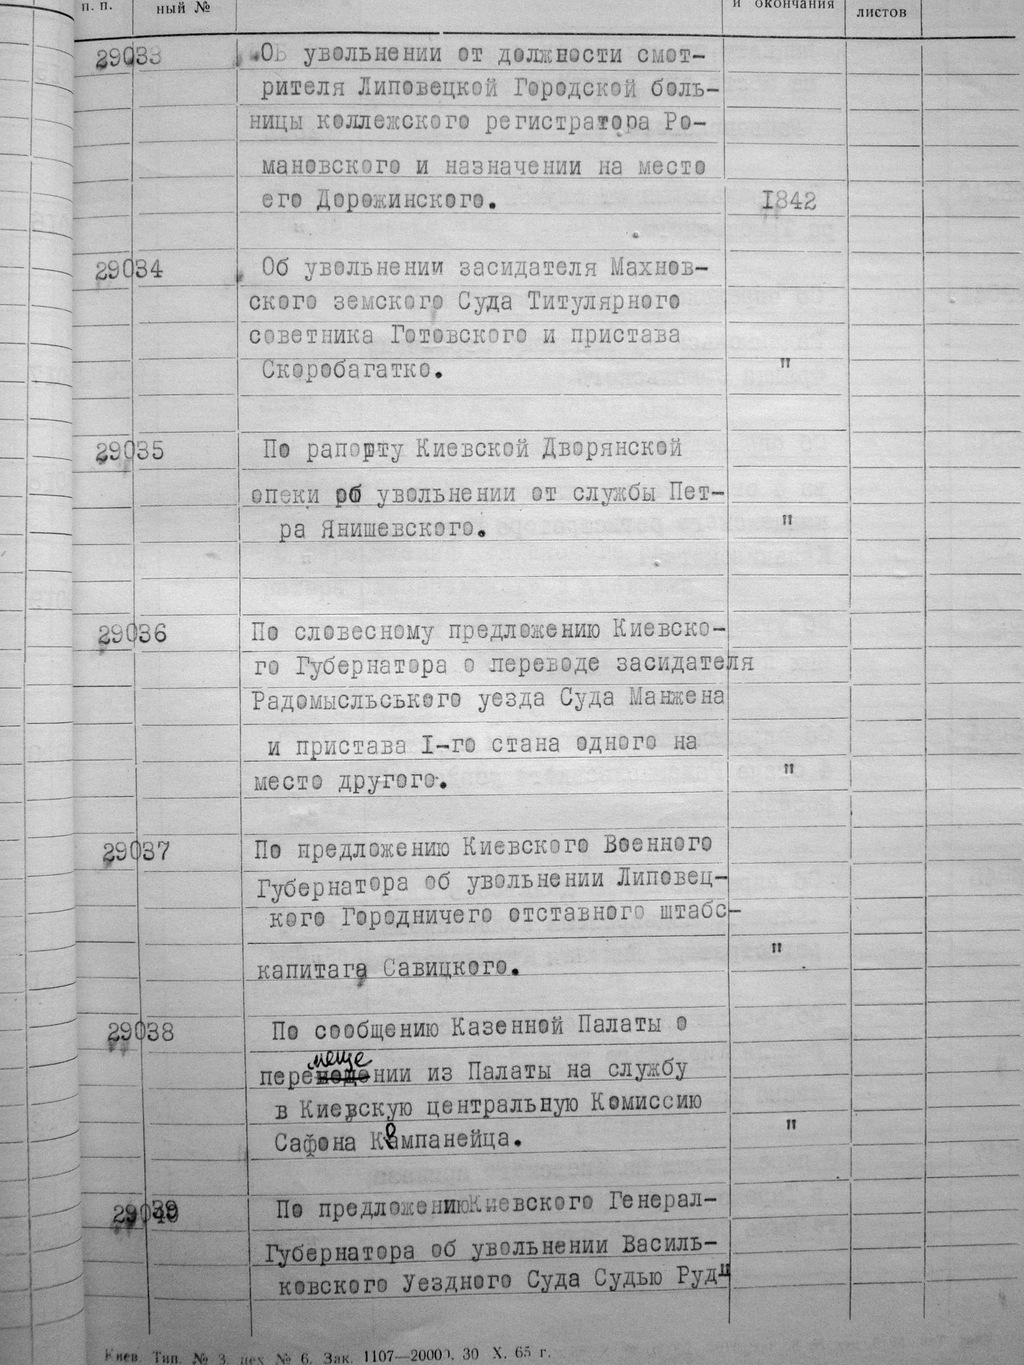 п. п.
ный №
и окончания
листов
29033 Об увольнении от должности смот-
рителя Липовецкой Городской боль-
ницы коллежского регистратора Ро-
мановского и назначении на место
его Дорожинского. 1842
29034 Об увольнении засидателя Махнов-
ского земского Суда Титулярного
советника Готовского и пристава
Скоробагатко. "
29035 По рапорту Киевской Дворянской
опеки об увольнении от службы Пет-
ра Янишевского. "
29036 По словесному предложению Киевско-
го Губернатора о переводе засидателя
Радомысльського уезда Суда Манжена
и пристава I-го стана одного на
место другого. "
29037 По предложению Киевского Военного
Губернатора об увольнении Липовец-
кого Городничего отставного штабс-
капитага Савицкого. "
29038 По сообщению Казенной Палаты о
перемещении из Палаты на службу
в Киевскую центральную Комиссию
Сафона Кампанейца. "
29039 По предложению Киевского Генерал-
Губернатора об увольнении Василь-
ковского Уездного Суда Судью Руд-
Киев. Тип. № 3, цех № 6. Зак. 1107—20000. 30 X. 65 г.